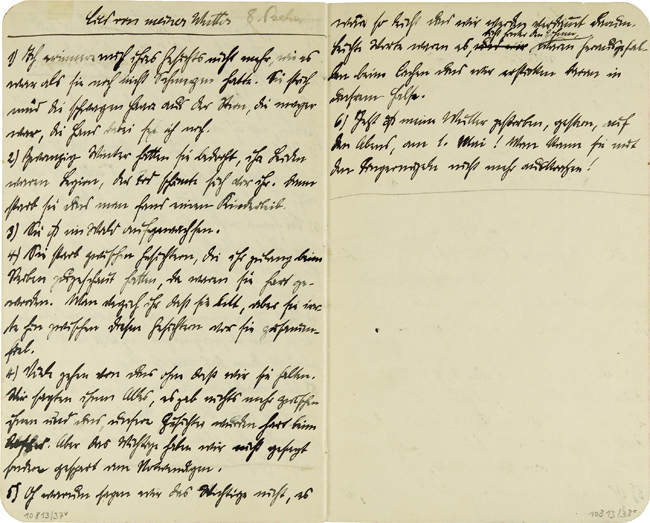 Lied von meiner Mutter 8. Psalm
1) Ich erinnere mich ihres Gesichts nicht mehr, wie es
war als sie noch nicht Schmerzen hatte. Sie strich
müd die schwarzen Haare aus der Stirn, die mager
war, die Hand dabei seh ich noch.
2) Zwanzig Winter hatten sie bedroht, ihre Leiden
waren Legion, der Tod schämte sich vor ihr. Dann
starb sie und man fand einen Kinderleib.
3) Sie ist im Wald aufgewachsen.
4) Sie starb zwischen Gesichtern, die ihr zu lang beim
Sterben zugeschaut hatten, da waren sie hart ge-
worden. Man verzieh ihr daß sie litt, aber sie irr-
te hin zwischen diesen Gesichtern vor sie zusammen-
fiel.
4) Viele gehen von uns ohne daß wir sie halten.
Wir sagten ihnen Alles, es gab nichts mehr zwischen
ihnen und uns unsere Gesichter wurden hart beim
Abschied. Aber das Wichtige haben wir nicht gesagt
sondern gespart am Notwendigen.
5) Oh warum sagen wir das Wichtige nicht, es
wäre so leicht und wir werden verdammt darum.
Leichte Worte waren es, dicht hinter den Zähnen, waren herausgefal-
len beim Lachen und wir ersticken daran in
unserem Halse.
6) Jetzt ist meine Mutter gestorben, gestern, auf
den Abend, am 1. Mai! Man kann sie mit
den Fingernägeln nicht mehr auskratzen!
10813/37v
10813/38r